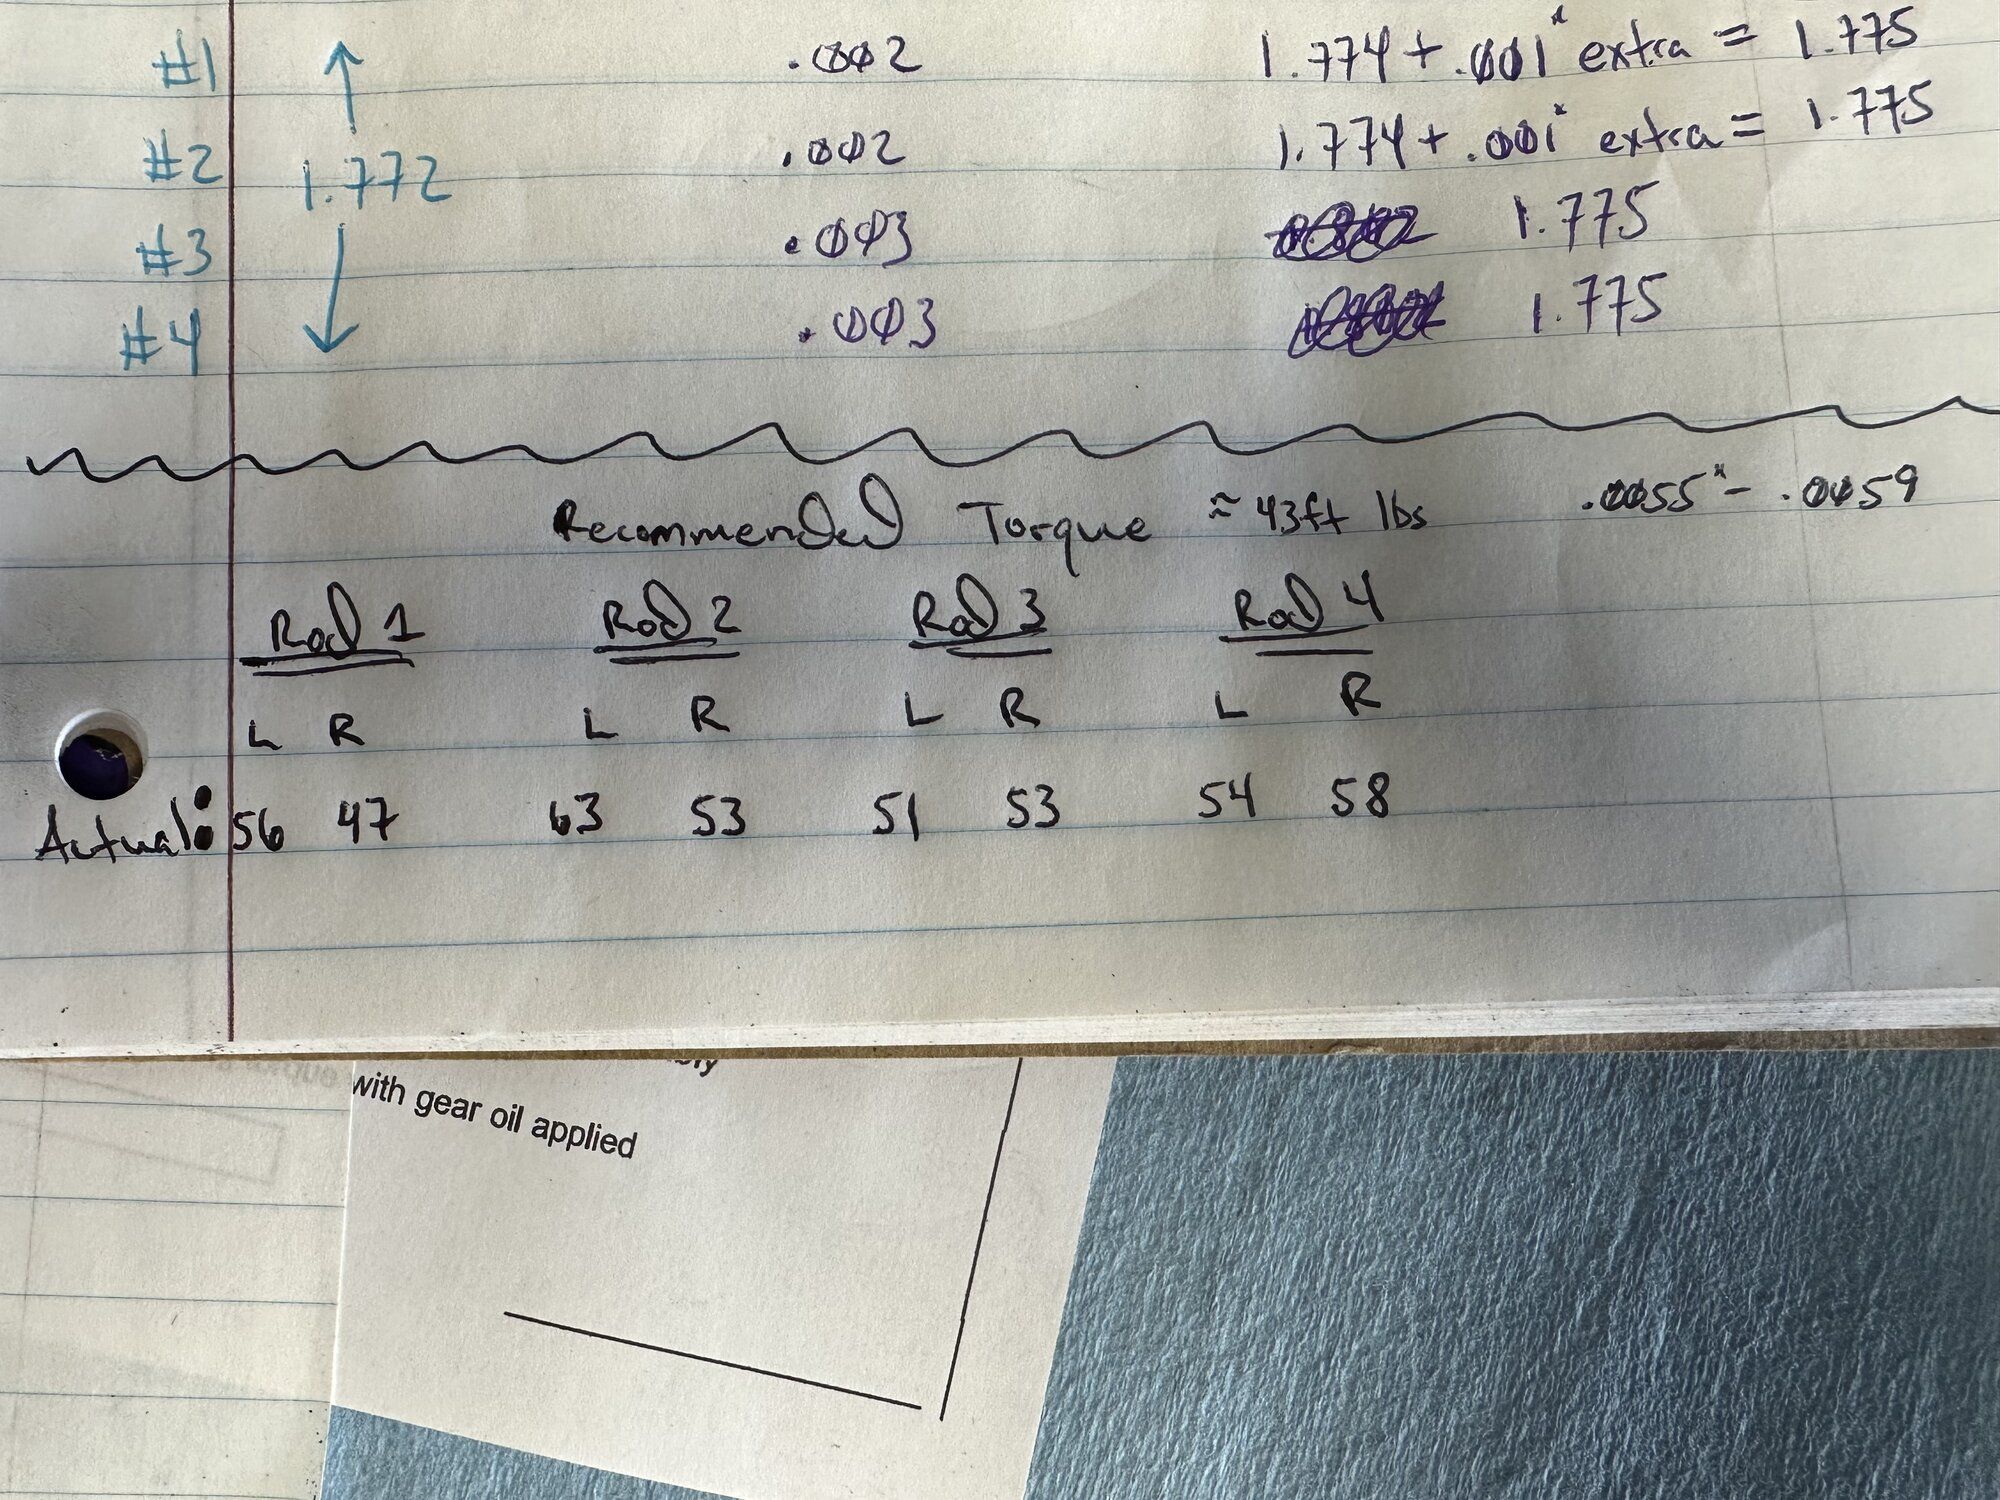 #1 .002 1.774 + .001" extra = 1.775
#2 1.772 .002 1.774 + .001" extra = 1.775
#3 .003 1.775
#4 .003 1.775
Recommended Torque ≈ 43ft lbs .0055" - .0059
Rod 1 Rod 2 Rod 3 Rod 4
L R L R L R L R
Actual: 56 47 63 53 51 53 54 58
with gear oil applied